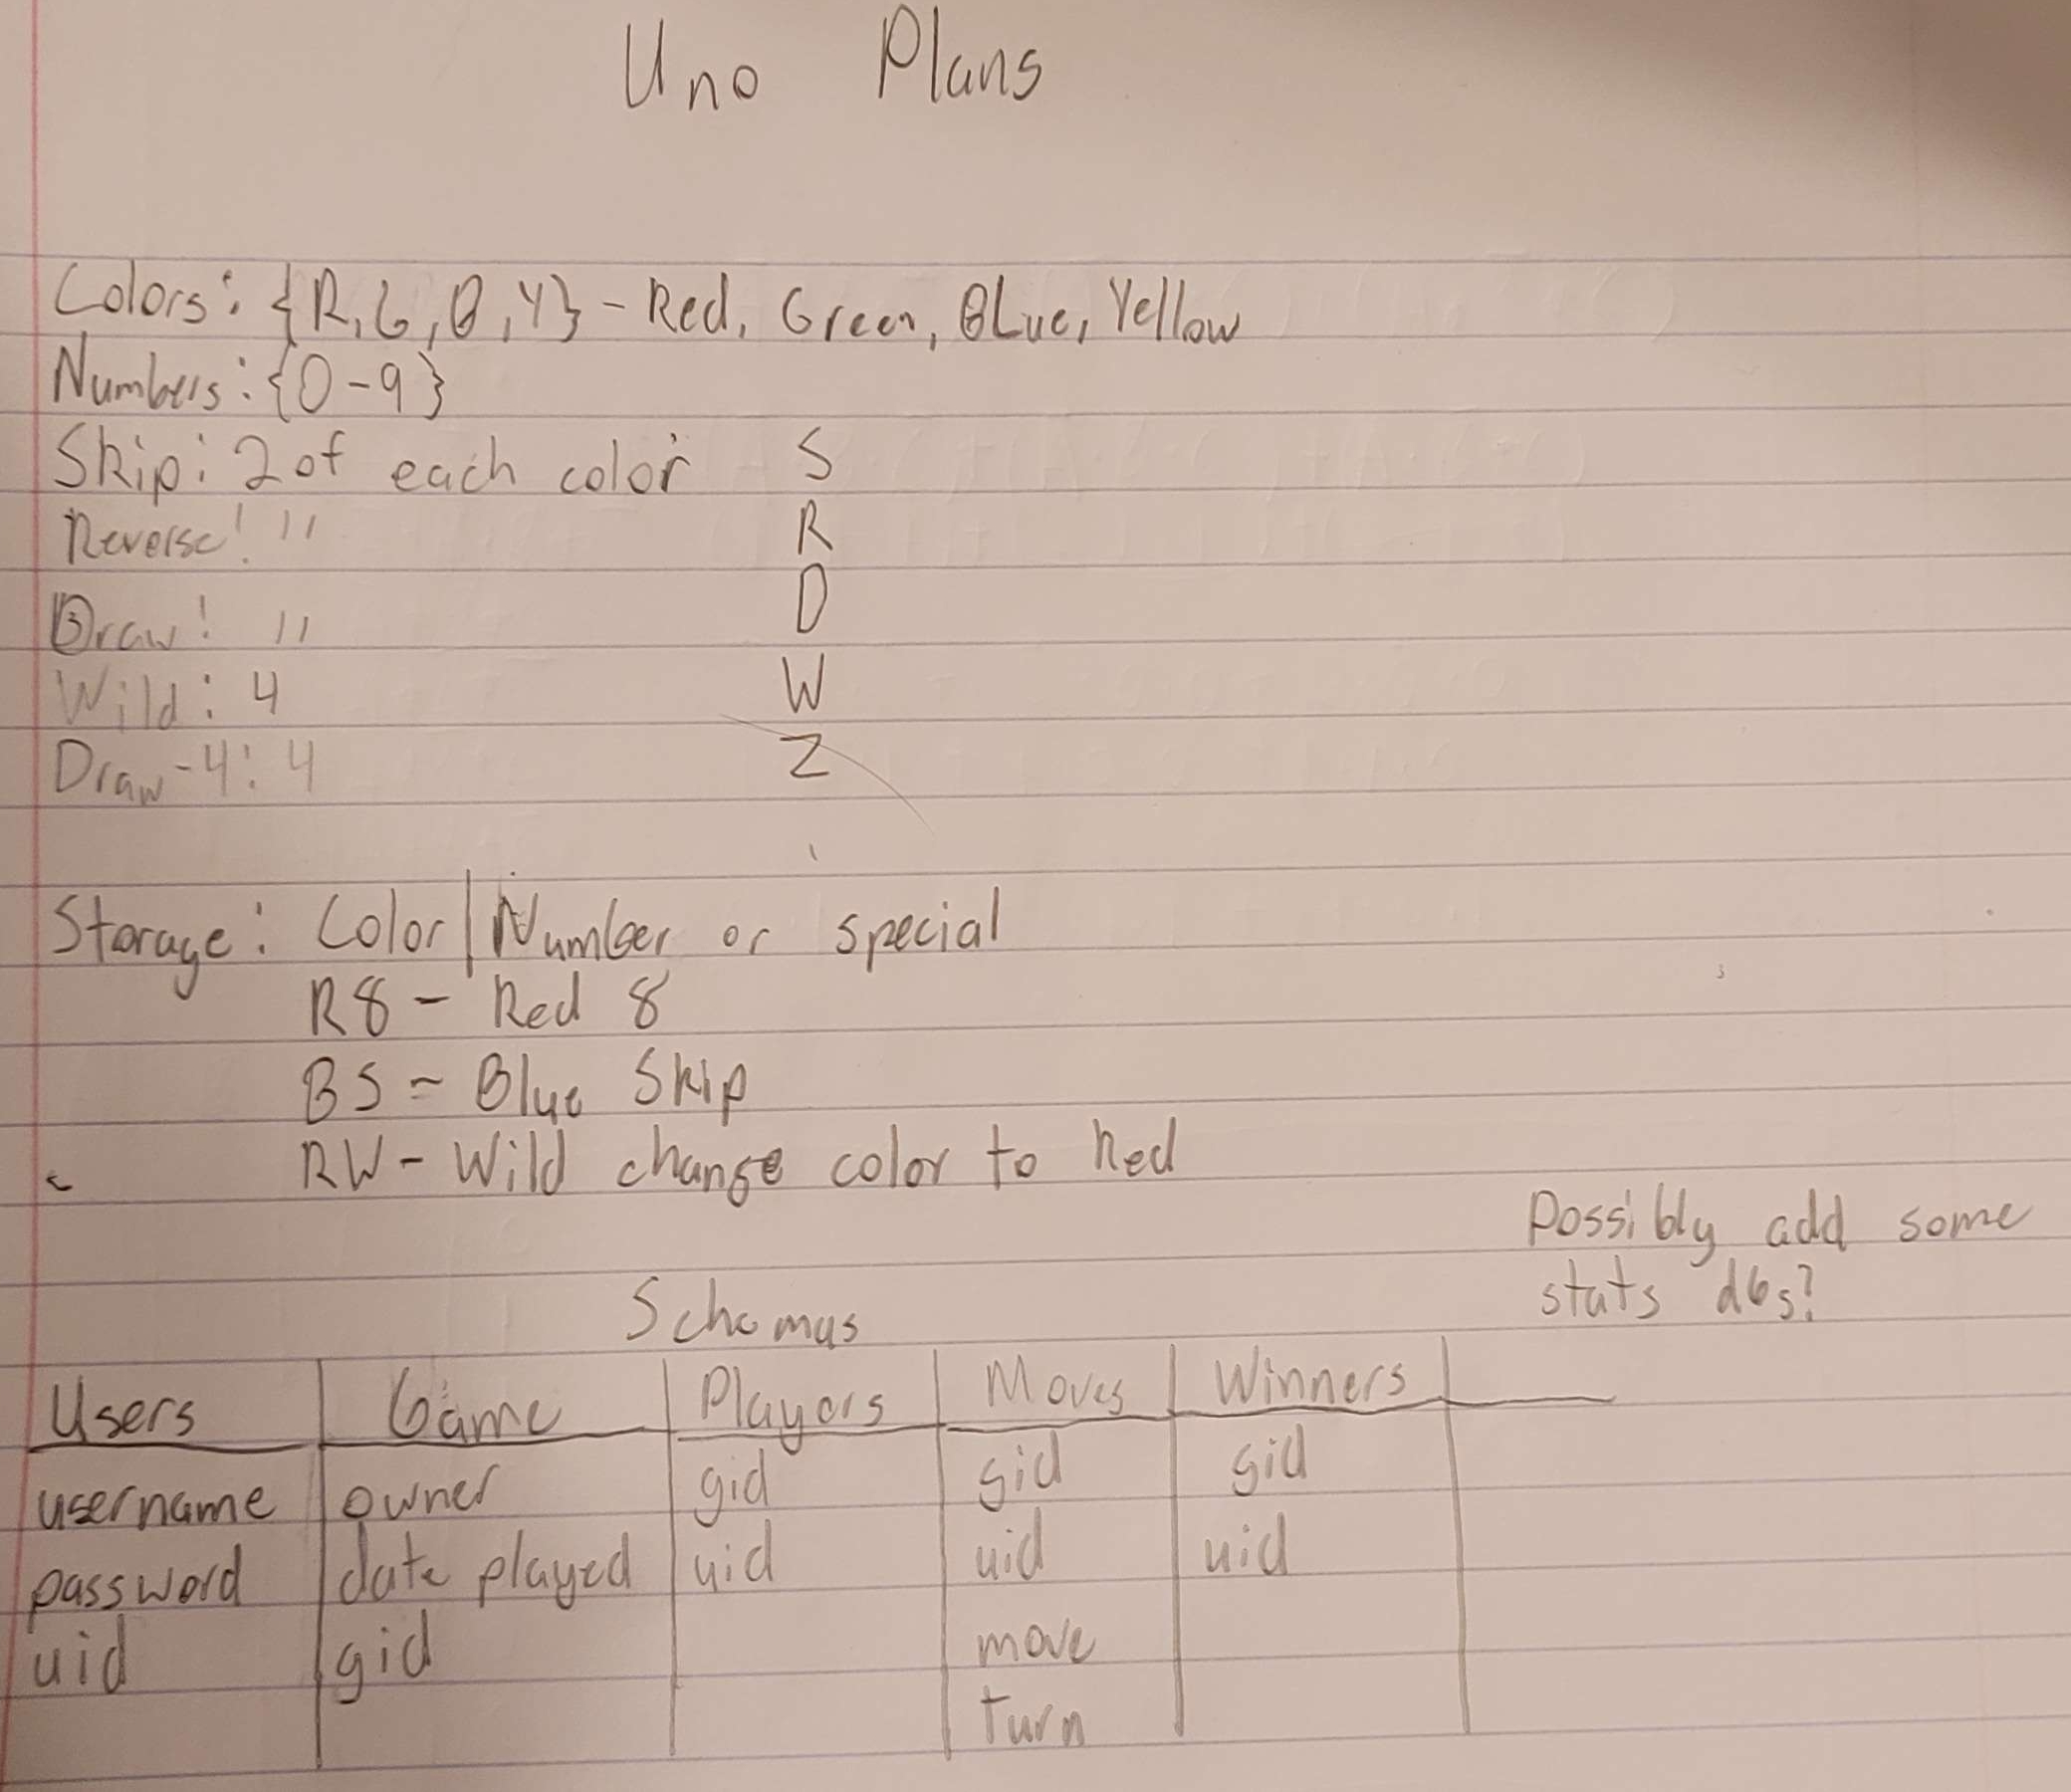 Uno Plans
Colors: {R, G, B, Y} - Red, Green, BLue, Yellow
Numbers: {0-9}
Skip: 2 of each color S
Reverse: " R
Draw: " D
Wild: 4 W
Draw-4: 4 Z
Storage: Color | Number or special
R8 - Red 8
BS - Blue Skip
RW - Wild change color to Red
Possibly add some
stats dbs?
Schemas
Users Game Players Moves Winners
username owner gid gid gid
password date played uid uid uid
uid gid move
turn